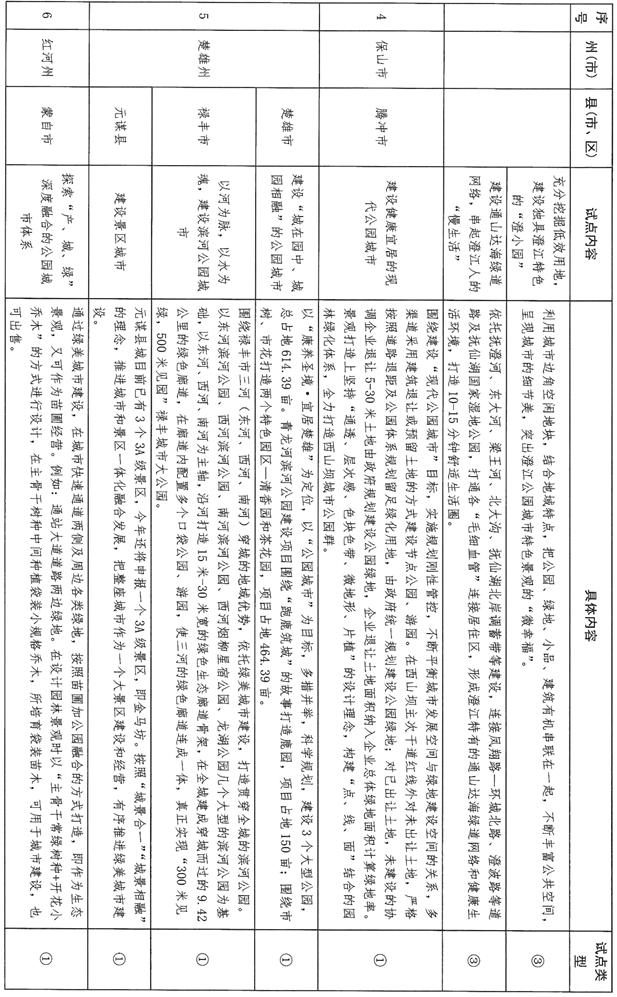 序号
州(市)
县(市、区)
试点内容
具体内容
试点类型
充分挖掘低效用地,
建设独具澄江特色
的“澄小园”
利用城市边角空闲地块，结合地域特点，把公园、绿地、小品、建筑有机串联在一起，不断丰富公共空间，
呈现城市的细节美，突出澄江公园城市特色景观的“微幸福”。
③
建设通山达海绿道
网络，串起澄江人的
“慢生活”
依托抚澄河、东大河、梁王河、北大沟、抚仙湖北岸调蓄带等建设，连接凤翔路—环城北路、澄波路等道
路及抚仙湖国家湿地公园，打通各“毛细血管”连接居住区，形成澄江特有的通山达海绿道网络和健康生
活环境，打造10-15分钟舒适生活圈。
③
4
保山市
腾冲市
建设健康宜居的现
代公园城市
围绕建设“现代公园城市”目标，实施规划刚性管控，不断平衡城市发展空间与绿地建设空间的关系，多
渠道采用建筑退让或预留土地的方式建设节点公园、游园。在西山坝主次干道红线外对未出让土地，严格
按照道路退距及公园体系规划留足绿化用地，由政府统一规划建设公园绿地；对已出让土地，未建设的协
调企业退让5-30米土地由政府规划建设公园绿地，企业退让土地面积纳入企业总体绿地面积计算绿地率。
景观打造上坚持“通透、层次感、色块色带、微地形、片植”的设计理念，构建“点、线、面”结合的园
林绿化体系，全力打造西山坝城市公园群。
①
5
楚雄州
楚雄市
建设“城在园中、城
园相融”的公园城市
以“康养圣境·宜居楚雄”为定位，以“公园城市”为目标，多措并举，科学规划，建设3个大型公园，
总占地614.39亩。青龙河滨河公园建设项目围绕“跑鹿筑城”的故事打造鹿园，项目占地150亩；围绕市
树、市花打造两个特色园区—清香园和茶花园，项目占地464.39亩。
①
禄丰市
以河为脉，以水为
魂，建设滨河公园城
市
围绕禄丰市三河（东河、西河、南河）穿城的地域优势，依托绿美城市建设，打造贯穿全城的滨河公园。
以东河滨河公园、西河滨河公园、南河滨河公园、西河烟柳星宿公园、龙湖公园几个大型的滨河公园为基
础，以东河、西河、南河为主轴，沿河打造15米-30米宽的绿色生态廊道骨架，在全城建成穿城而过的9.42
公里的绿色廊道，在廊道内配置多个口袋公园、游园，使三河的绿色廊道连成一体，真正实现“300米见
绿，500米见园”禄丰城市大公园。
①
元谋县
建设景区城市
元谋县城目前已有3个3A级景区，今年还将申报一个3A级景区，即金马坊。按照“城景合一”“城景相融”
的理念，推进城市和景区一体化融合发展，把整座城市作为一个大景区建设和经营，有序推进绿美城市建
设。
①
6
红河州
蒙自市
探索“产、城、绿”
深度融合的公园城
市体系
通过绿美城市建设，在城市快速通道两侧及周边各类绿地，按照苗圃加公园融合的方式打造，即作为生态
景观，又可作为苗圃经营。例如：通站大道道路两边绿地。在设计园林景观时以“主骨干常绿树种+开花小
乔木”的方式进行设计，在主骨干树种中间种植袋装小规格乔木，所培育袋装苗木，可用于城市建设，也
可出售。
①